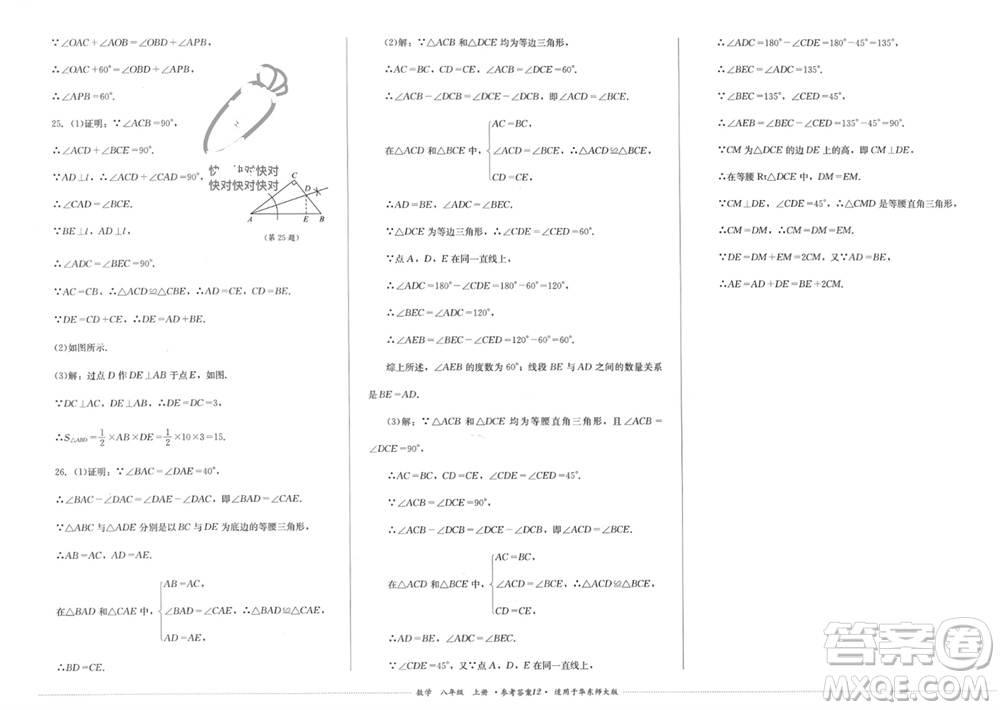 ∵∠OAC+∠AOB=∠OBD+∠APB,
∴∠OAC+60°=∠OBD+∠APB,
∴∠APB=60°.
25. (1)证明:∵∠ACB=90°,
∴∠ACD+∠BCE=90°.
∵AD⊥l,∴∠ACD+∠CAD=90°.
∴∠CAD=∠BCE.
∵BE⊥l,AD⊥l,
∴∠ADC=∠BEC=90°.
∵AC=CB,∴△ACD≌△CBE,∴AD=CE,CD=BE.
∵DE=CD+CE,∴DE=AD+BE.
(2)如图所示.
(3)解:过点D作DE⊥AB于点E,如图.
∵DC⊥AC,DE⊥AB,∴DE=DC=3,
∴S△ABD=1/2×AB×DE=1/2×10×3=15.
26. (1)证明:∵∠BAC=∠DAE=40°,
∴∠BAC-∠DAC=∠DAE-∠DAC,即∠BAD=∠CAE.
∵△ABC与△ADE分别是以BC与DE为底边的等腰三角形,
∴AB=AC,AD=AE.
AB=AC,
在△BAD和△CAE中, ∠BAD=∠CAE, ∴△BAD≌△CAE,
AD=AE,
∴BD=CE.
快对快对
快对快对快对
C
D
A E B
(第25题)
(2)解:∵△ACB和△DCE均为等边三角形,
∴AC=BC,CD=CE,∠ACB=∠DCE=60°,
∴∠ACB-∠DCB=∠DCE-∠DCB,即∠ACD=∠BCE.
AC=BC,
在△ACD和△BCE中, ∠ACD=∠BCE, ∴△ACD≌△BCE.
CD=CE,
∴AD=BE,∠ADC=∠BEC.
∵△DCE为等边三角形,∴∠CDE=∠CED=60°.
∵点A、D、E在同一直线上,
∴∠ADC=180°-∠CDE=180°-60°=120°,
∴∠BEC=∠ADC=120°,
∴∠AEB=∠BEC-∠CED=120°-60°=60°.
综上所述,∠AEB的度数为60°;线段BE与AD之间的数量关系
是BE=AD.
(3)解:∵△ACB和△DCE均为等腰直角三角形,且∠ACB=
∠DCE=90°,
∴AC=BC,CD=CE,∠CDE=∠CED=45°.
∵∠ACB=∠DCE=90°,
∴∠ACB-∠DCB=∠DCE-∠DCB,即∠ACD=∠BCE.
AC=BC,
在△ACD和△BCE中, ∠ACD=∠BCE, ∴△ACD≌△BCE,
CD=CE,
∴AD=BE,∠ADC=∠BEC.
∵∠CDE=45°,又∵点A、D、E在同一直线上,
∴∠ADC=180°-∠CDE=180°-45°=135°,
∴∠BEC=∠ADC=135°.
∵∠BEC=135°,∠CED=45°,
∴∠AEB=∠BEC-∠CED=135°-45°=90°.
∵CM为△DCE的边上的高,即CM⊥DE,
∴在等腰Rt△DCE中,∠CDE=45°.
∵CM⊥DE,∠CDE=45°,∴△CMD是等腰直角三角形,
∴CM=DM,∴CM=DM=EM.
∵DE=DM+EM=2CM,又∵AD=BE,
∴AE=AD+DE=BE+2CM.
数学 八年级 上册·参考答案12·适用于华东师大版
答案卷